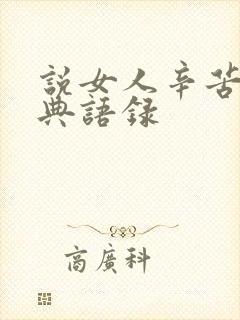 說女人辛苦
典語錄
商廣科